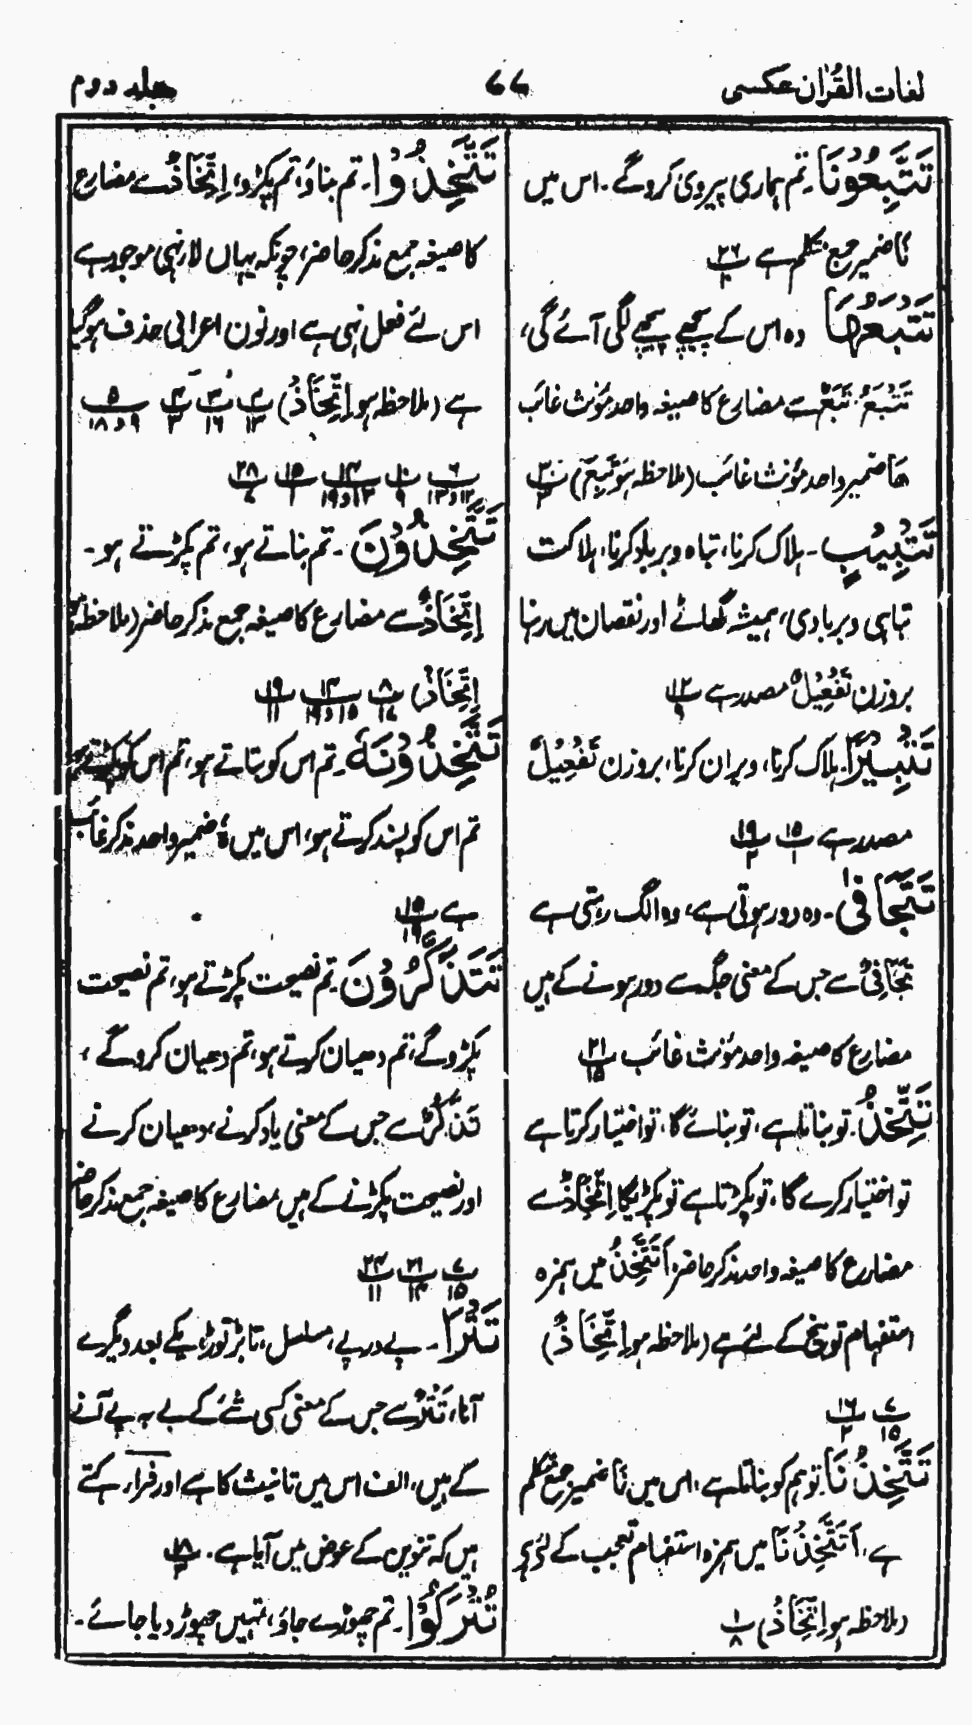 لغات القرآن عکسی
۷۷
جلد دوم
تَتَّبِعُونَا۔ تم ہماری پیروی کروگے۔ اس میں
نَا ضمیر جمع متکلم ہے پ۲۶
تَتْبَعُهَا وہ اس کے پیچھے پیچھے لگی آئے گی،
تَتْبَعُ، تَبَعٌ سے مضارع کا صیغہ واحد مؤنث غائب
ھَا ضمیر واحد مؤنث غائب (ملاحظہ ہو تَبِعَ) پ۳۰
تَتْبِيْبٍ۔ ہلاک کرنا، تباہ و برباد کرنا، ہلاکت
تباہی و بربادی، ہمیشہ گھاٹے اور نقصان میں رہنا
بروزن تَفْعِيْلٌ مصدر ہے پ۱۲ ۹
تَتْبِيْرًا۔ ہلاک کرنا، ویران کرنا، بروزن تَفْعِيْلٌ
مصدر ہے پ۱۵ ۱ پ۱۹ ۲
تَتَجَافٰى۔ وہ دور ہوتی ہے، وہ الگ رہتی ہے
تَجَافِیْ سے جس کے معنی جگہ سے دور ہونے کے ہیں
مضارع کا صیغہ واحد مؤنث غائب پ۲۱ ۱۵
تَتَّخِذُ۔ تو بناتا ہے، تو بنائے گا، تو اختیار کرتا ہے
تو اختیار کرے گا، تو پکڑتا ہے تو پکڑیگا اِتِّخَاذٌ سے
مضارع کا صیغہ واحد مذکر حاضر، اَتَتَّخِذُ میں ہمزہ
استفہام توبیخ کے لئے ہے (ملاحظہ ہو اِتِّخَاذٌ)
پ۷ ۱۵ پ۱۶ ۲
تَتَّخِذُنَا۔ تو ہم کو بناتا ہے، اس میں نَا ضمیر جمع متکلم
ہے، اَتَتَّخِذُنَا میں ہمزہ استفہام تعجب کے لئے ہے
(ملاحظہ ہو اِتِّخَاذٌ) پ۱ ۸
تَتَّخِذُوا۔ تم بناؤ، تم پکڑو، اِتِّخَاذٌ سے مضارع
کا صیغہ جمع مذکر حاضر، چونکہ یہاں لا نہی موجود ہے
اس لئے فعل نہی ہے اور نون اعرابی حذف ہوگیا
ہے (ملاحظہ ہو اِتِّخَاذٌ) پ۲ ۱۳ پ۳ ۱۶ پ۴ ۳ پ۵ ۹و۱۸
پ۶ ۱۲و۱۳ پ۱۰ ۹ پ۱۴ ۱۳و۱۹ پ۱۵ ۱ پ۲۸ ۷
تَتَّخِذُوْنَ۔ تم بناتے ہو، تم پکڑتے ہو۔
اِتِّخَاذٌ سے مضارع کا صیغہ جمع مذکر حاضر (ملاحظہ ہو
اِتِّخَاذٌ) پ۸ ۱۷ پ۱۴ ۱۵و۱۹ پ۱۹ ۱۱
تَتَّخِذُوْنَهٗ۔ تم اس کو بناتے ہو، تم اس کو پکڑتے ہو
تم اس کو پسند کرتے ہو، اس میں ہٗ ضمیر واحد مذکر غائب
ہے پ۱۵ ۱۹
تَتَذَكَّرُوْنَ۔ تم نصیحت پکڑتے ہو، تم نصیحت
پکڑوگے، تم دھیان کرتے ہو، تم دھیان کروگے،
تَذَكُّرٌ سے جس کے معنی یاد کرنے، دھیان کرنے
اور نصیحت پکڑنے کے ہیں مضارع کا صیغہ جمع مذکر حاضر
پ۷ ۱۵ پ۲۱ ۱۴ پ۲۴ ۱۱
تَتْرَا۔ پے درپے، مسلسل، تابڑ توڑ، یکے بعد دیگرے
آنا، تَتْرٰ سے جس کے معنی کسی شے کے پے بہ پے آنے
کے ہیں، الف اس میں تانیث کا ہے اور فرار کہتے
ہیں کہ تنوین کے عوض میں آیا ہے۔ پ۱۸
تُتْرَكُوْا۔ تم چھوڑے جاؤ، تمہیں چھوڑ دیا جائے۔